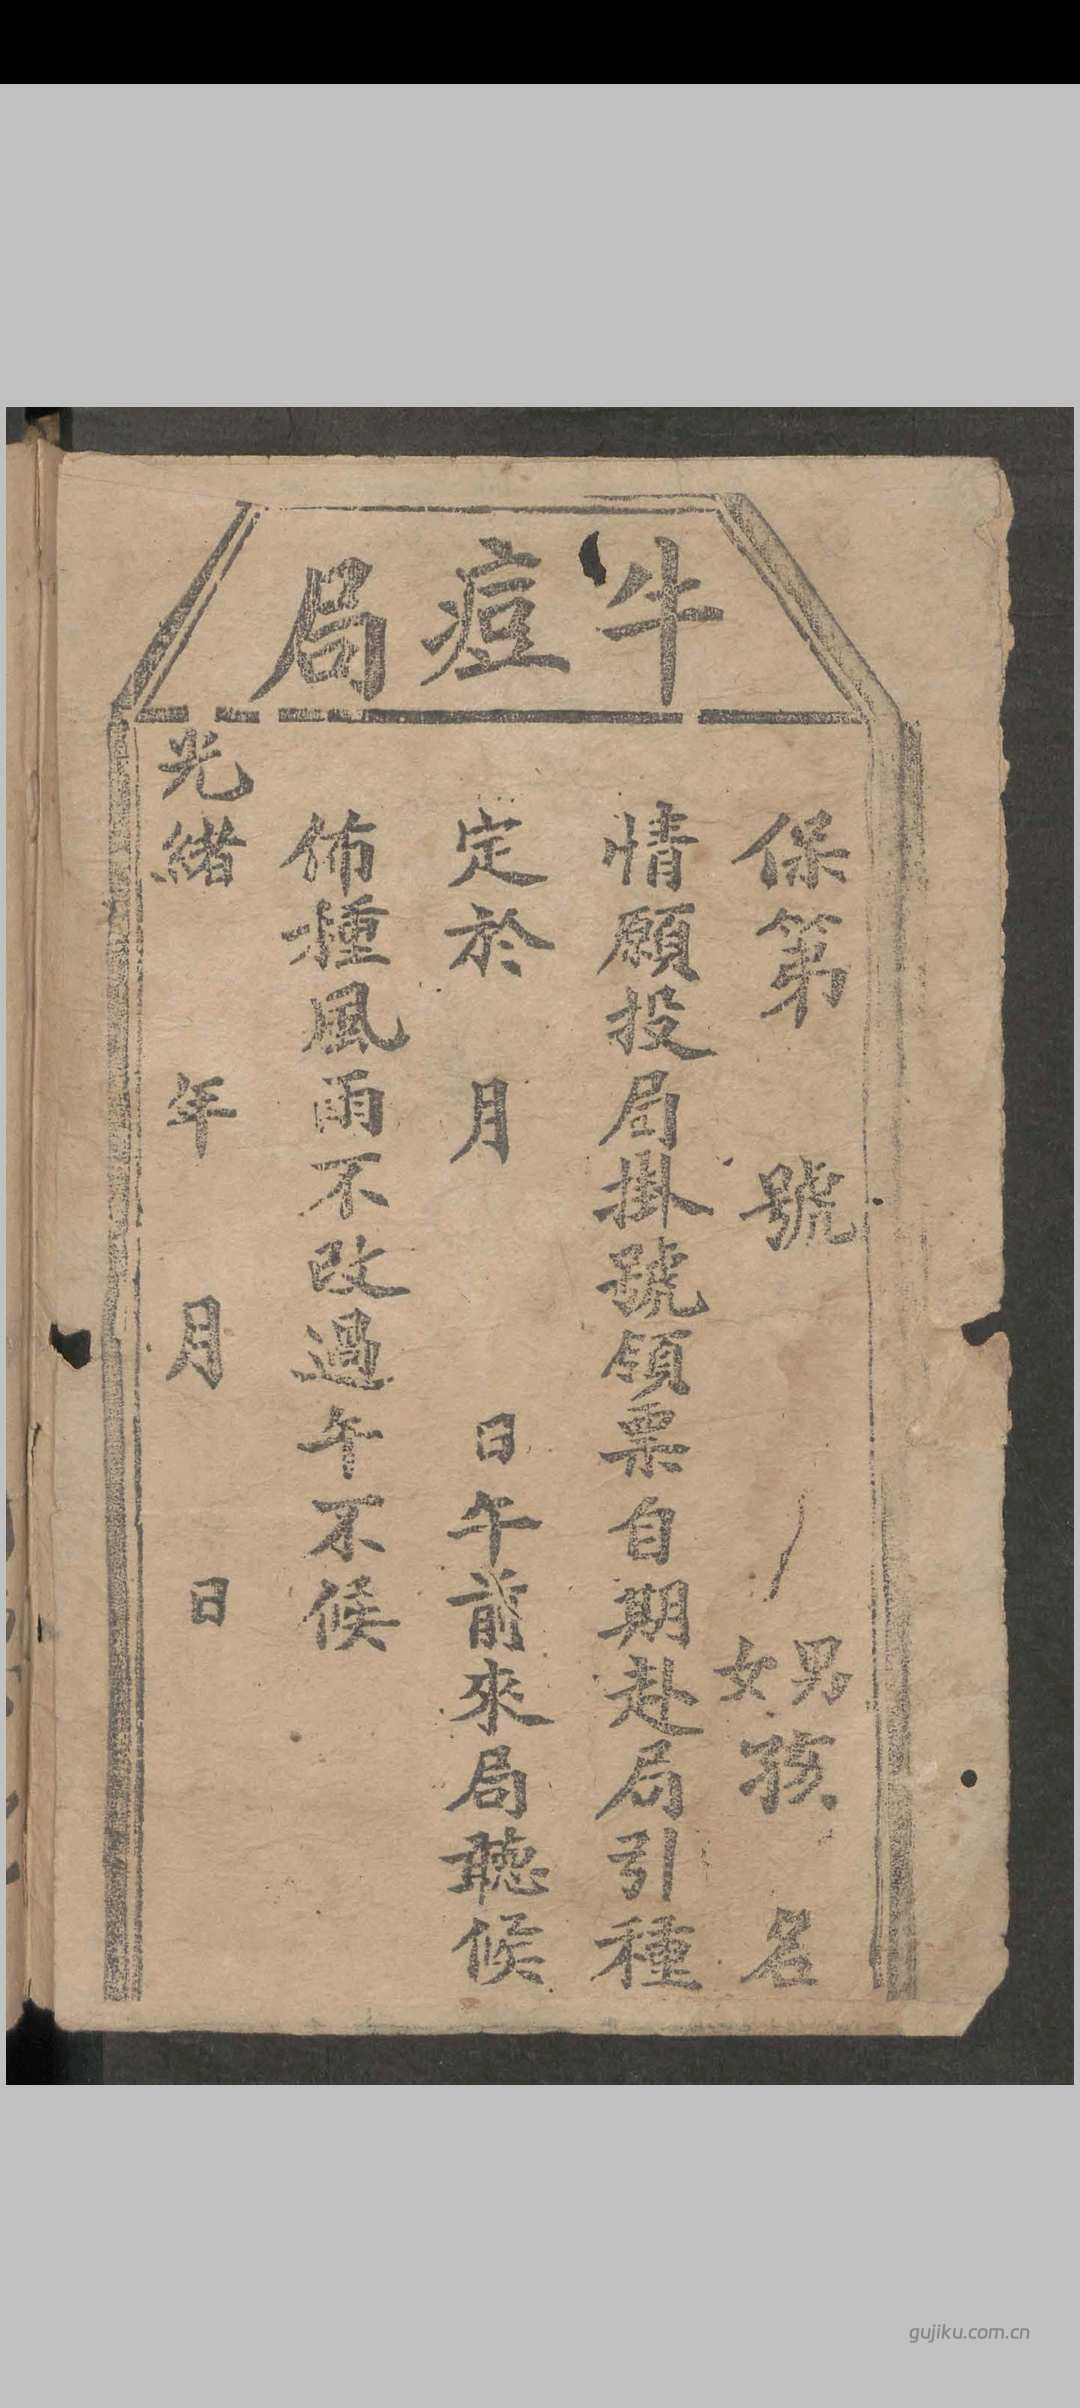 牛痘局
保第　號　男女孩　名
情願投局掛號領票自期赴局引種
定於　月　日午前來局聽候
佈種風雨不改過午不候
光緒　年　月　日
gujiku.com.cn